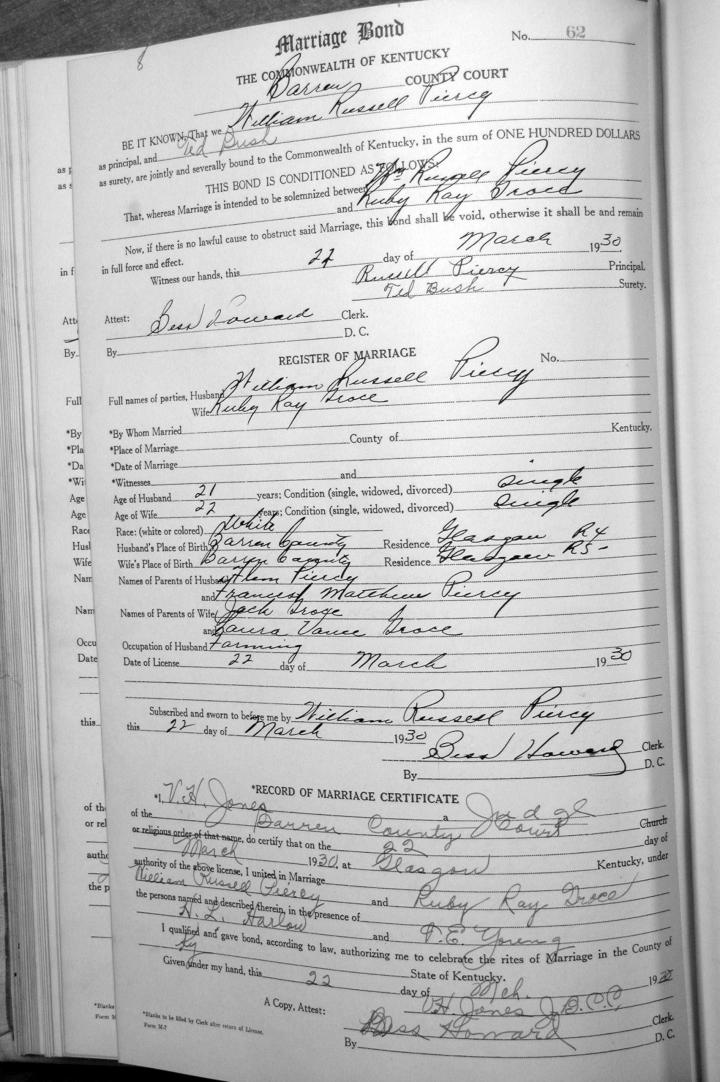 8
Marriage Bond No. 62
THE COMMONWEALTH OF KENTUCKY
Barren COUNTY COURT
BE IT KNOWN, That we William Russell Piercy
as principal, and Ted Bush
as surety, are jointly and severally bound to the Commonwealth of Kentucky, in the sum of ONE HUNDRED DOLLARS
THIS BOND IS CONDITIONED AS FOLLOWS:
That, whereas Marriage is intended to be solemnized between Wm Russell Piercy
and Ruby Ray Groce
Now, if there is no lawful cause to obstruct said Marriage, this bond shall be void, otherwise it shall be and remain
in full force and effect.
Witness our hands, this 22 day of March 1930
Russell Piercy Principal.
Ted Bush Surety.
Attest: Bess Howard Clerk.
By D. C.
REGISTER OF MARRIAGE No.
Full names of parties, Husband William Russell Piercy
Wife Ruby Ray Groce
*By Whom Married
*Place of Marriage County of Kentucky.
*Date of Marriage
*Witnesses and
Age of Husband 21 years; Condition (single, widowed, divorced) single
Age of Wife 22 years; Condition (single, widowed, divorced) single
Race: (white or colored) White
Husband's Place of Birth Barren County Residence Glasgow R4
Wife's Place of Birth Barren County Residence Glasgow R5-
Names of Parents of Husband Flem Piercy
and Frances Matthews Piercy
Names of Parents of Wife Jack Groce
and Laura Vance Groce
Occupation of Husband Farming
Date of License 22 day of March 1930
Subscribed and sworn to before me by William Russell Piercy
this 22 day of March 1930
Bess Howard Clerk.
By D. C.
*RECORD OF MARRIAGE CERTIFICATE
*I, V. H. Jones a Judge
of the Barren County Court Church
or religious order of that name, do certify that on the 22 day of
March 1930, at Glasgow Kentucky, under
authority of the above license, I united in Marriage
William Russell Piercy and Ruby Ray Groce
the persons named and described therein, in the presence of
H. L. Harlow and T. E. Young
I qualified and gave bond, according to law, authorizing me to celebrate the rites of Marriage in the County of
Ky State of Kentucky.
Given under my hand, this 22 day of Mch. 1930
V. H. Jones J. B. C. C.
A Copy, Attest: Bess Howard Clerk.
By D. C.
*Blanks to be filled by Clerk after return of License.
Form M-7